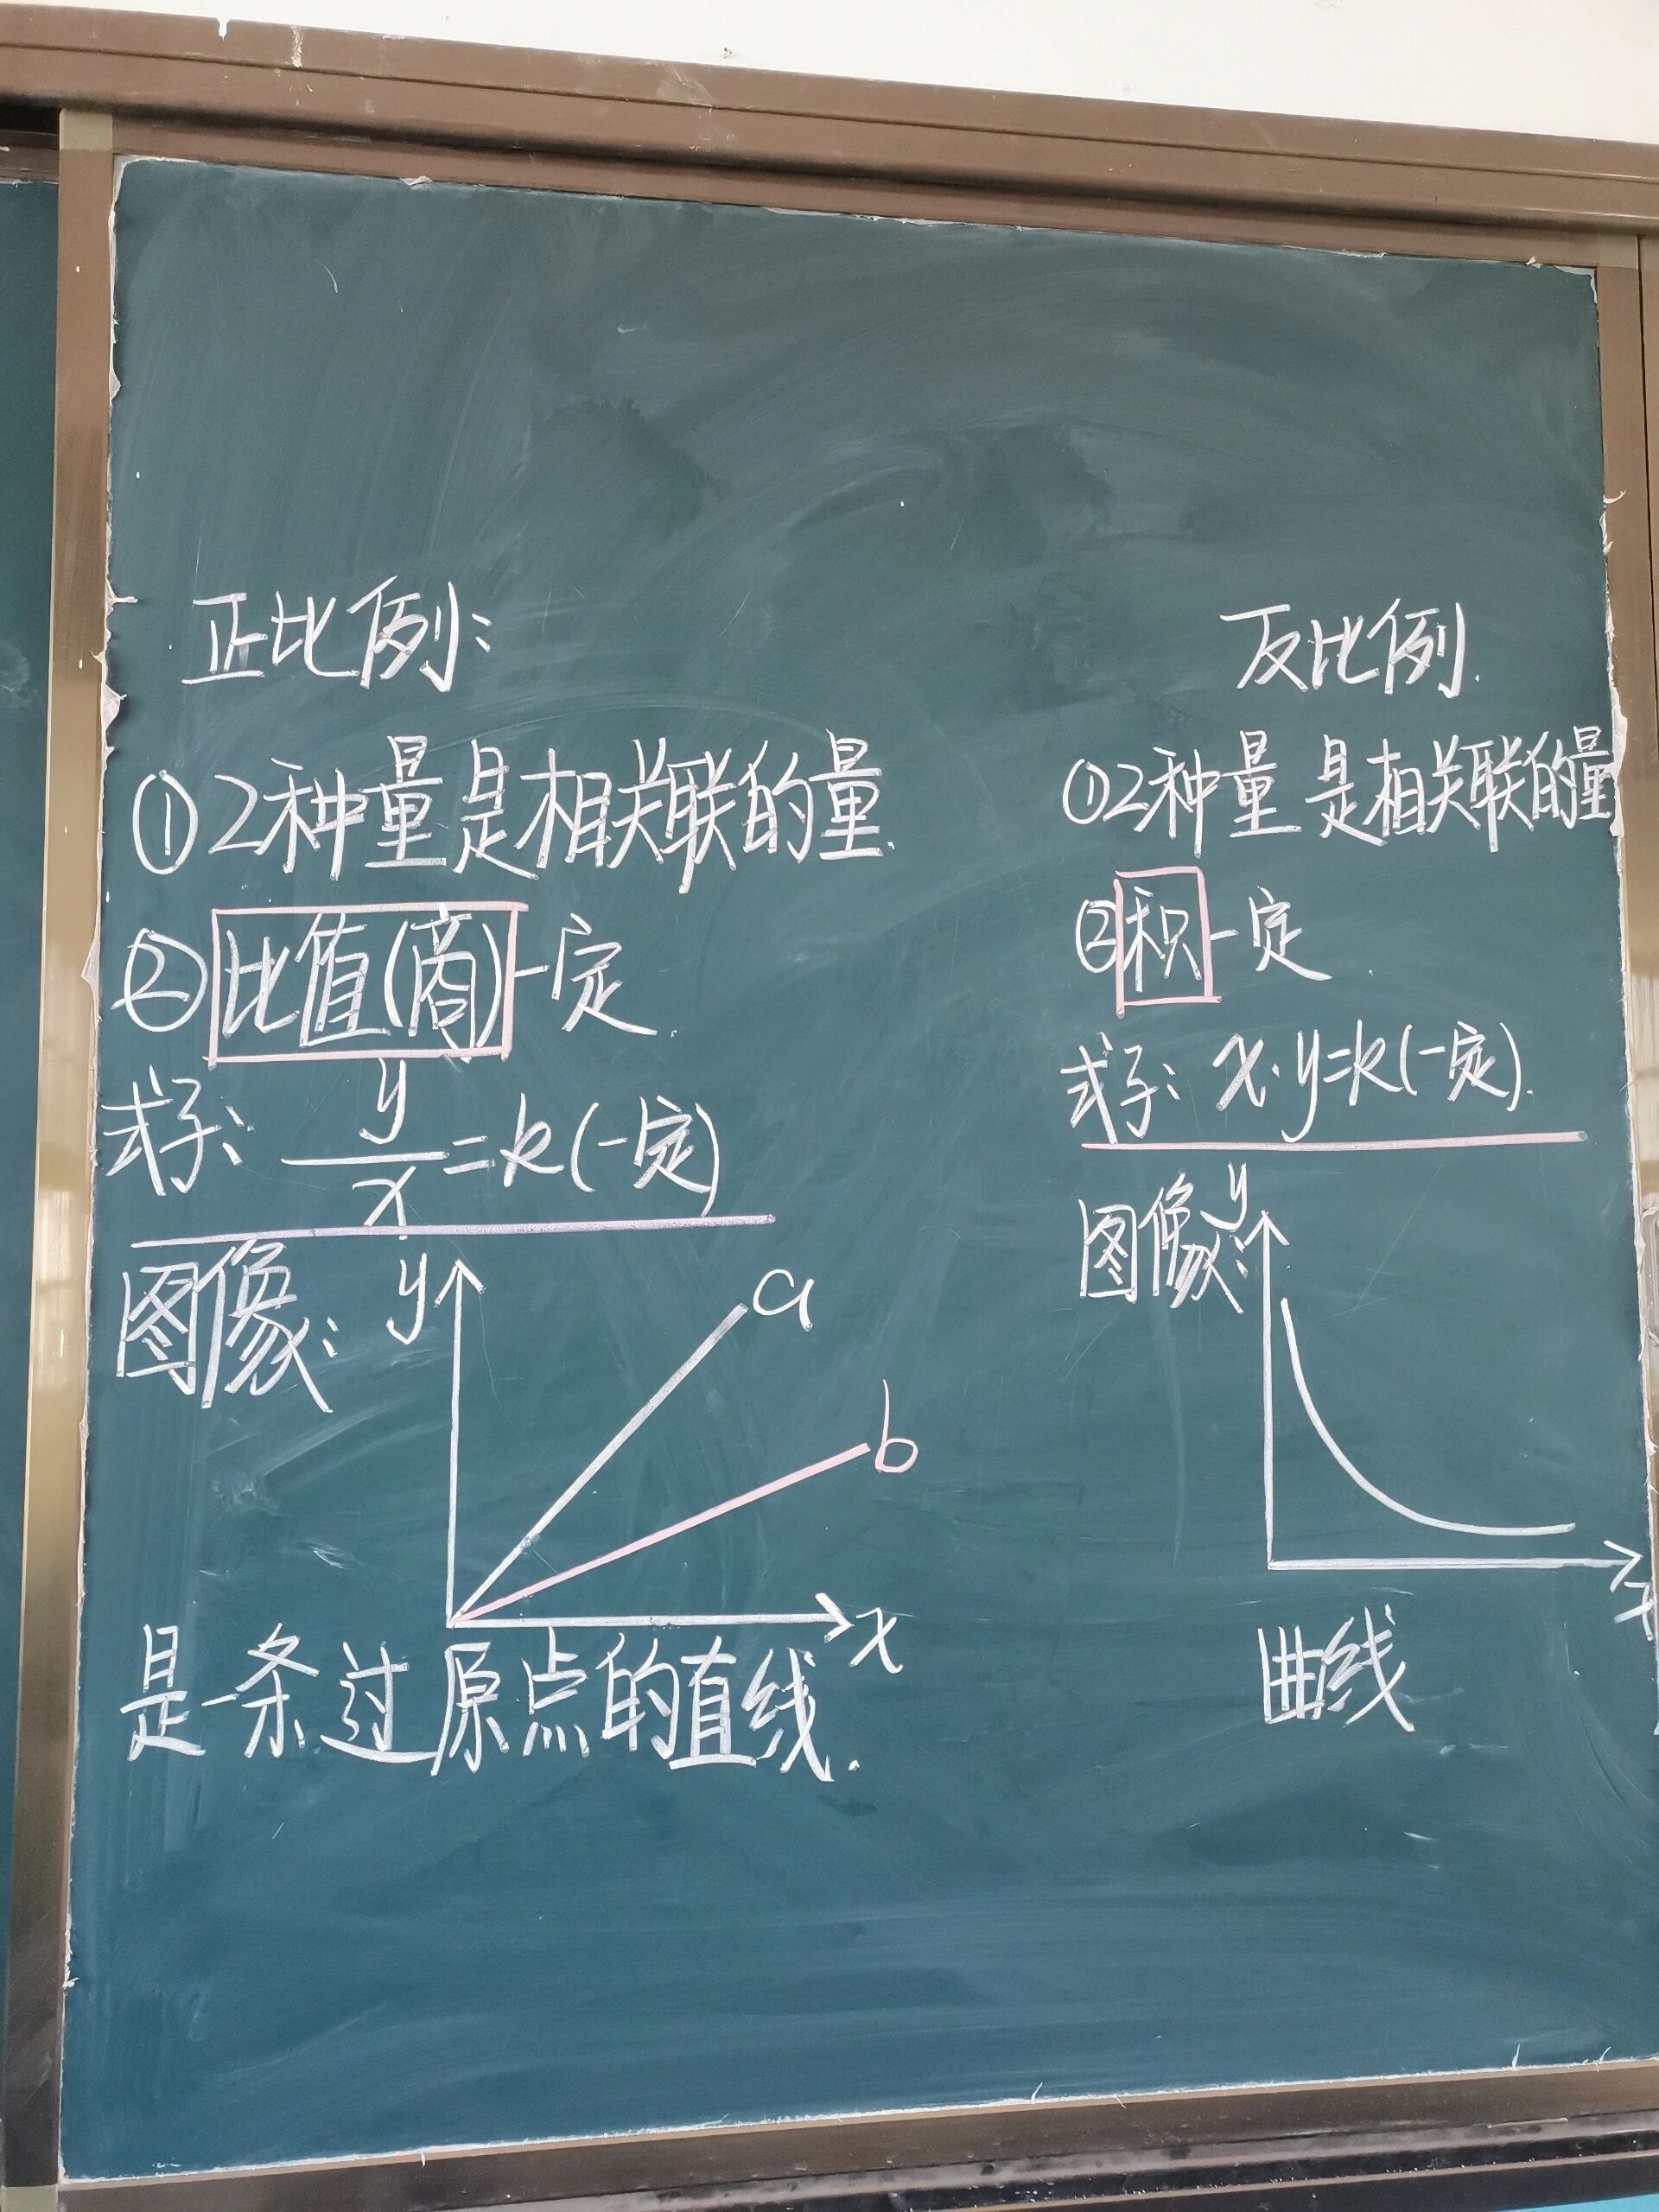 正比例:
①2种量是相关联的量.
②比值(商)一定.
式子: y/x=k(一定)
图像:
y
a
b
x
是一条过原点的直线.
反比例.
①2种量是相关联的量
②积一定
式子: x·y=k(一定).
图像:
y
x
曲线